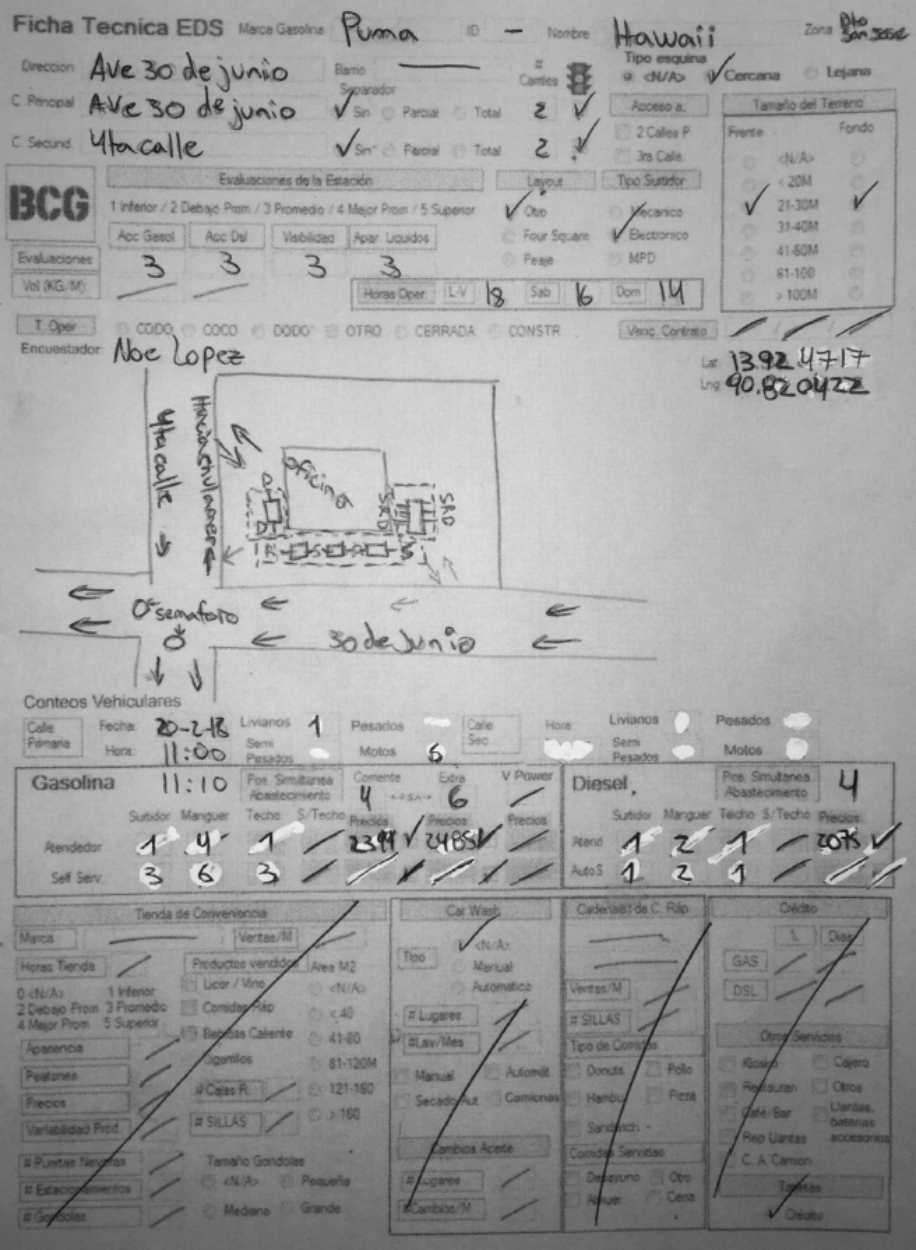 Ficha Tecnica EDS Marca Gasolina Puma ID - Nombre Hawaii Zona Dto San Jose
Direccion Ave 30 de junio Barrio # Carriles Tipo esquina <N/A> Cercana Lejana
Separador
C. Principal Ave 30 de junio Sin Parcial Total 2 Acceso a: Tamaño del Terreno
2 Calles P Frente Fondo
C. Secund. 4ta calle Sin Parcial Total 2 3ra Calle <N/A>
BCG Evaluaciones de la Estación Layout Tipo Surtidor < 20M
1 Inferior / 2 Debajo Prom / 3 Promedio / 4 Mejor Prom / 5 Superior Otro Mecanico 21-30M
Acc Gasol Acc Dsl Visibilidad Apar. Liquidos Four Square Electronico 31-40M
Evaluaciones 3 3 3 3 Peaje MPD 41-60M
61-100
Vol (KG/M) Horas Oper. L-V 18 Sab 16 Dom 14 > 100M
T. Oper CODO COCO DODO OTRO CERRADA CONSTR. Venc. Contrato / / /
Encuestador Noe Lopez Lat 13.92 4717
Lng 90.820422
4ta calle
Oficina
SRD
SRD
D
D
R S R S
semaforo
30 de Junio
Conteos Vehiculares
Calle Primaria Fecha 20-2-18 Livianos 1 Pesados Calle Sec Hora Livianos Pesados
Hora 11:00 Semi Pesados Motos 6 Semi Pesados Motos
Gasolina 11:10 Pos. Simultanea Abastecimiento Corriente 4 Extra 6 V Power Diesel Pos. Simultanea Abastecimiento 4
Surtidor Manguer Techo S/Techo Precios Precios Precios Surtidor Manguer Techo S/Techo Precios
Atendedor 1 4 1 / 2399 2485 / Atend 1 2 1 / 2075
Self Serv. 3 6 3 / / / / Auto S 1 2 1 / /
Tienda de Conveniencia Car Wash Cadena(s) de C. Ráp. Crédito
Marca Ventas/M <N/A> % Dias
Horas Tienda Productos vendidos Area M2 Tipo Manual GAS
0 <N/A> 1 Inferior Licor / Vino <N/A> Automatico Ventas/M DSL
2 Debajo Prom. 3 Promedio Comidas Ráp < 40 # Lugares # SILLAS
4 Mejor Prom 5 Superior Bebidas Caliente 41-80 #Lav/Mes Tipo de Comida Otros Servicios
Apariencia Cigarrillos 81-120M Manual Automát. Donuts Pollo Kiosko Cajero
Peatones # Cajas R. 121-160 Secado Aut Camiones Hambu Pizza Restauran Otros
Precios # SILLAS > 160 Sandwich Café/Bar Llantas, baterias accesorios
Variabilidad Prod. Cambios Aceite Comidas Servidas Rep Llantas
# Puertas Neveras Tamaño Gondolas # Lugares Desayuno Otro C. A. Camion
# Estacionamientos <N/A> Pequeña #Cambios/M Almuer Cena Tarjetas
# Gondolas Mediano Grande Crédito